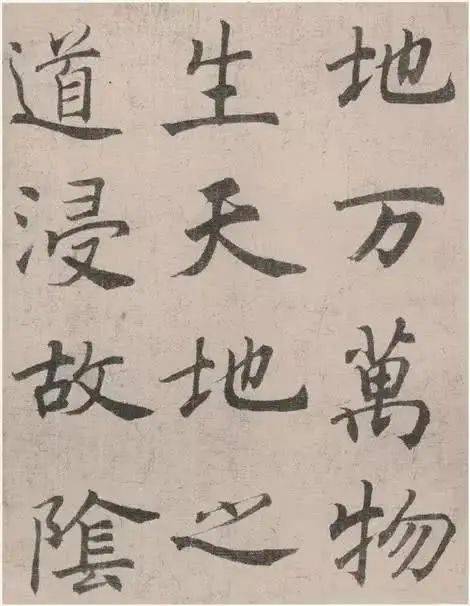 地万萬物
生天地之
道浸故隂